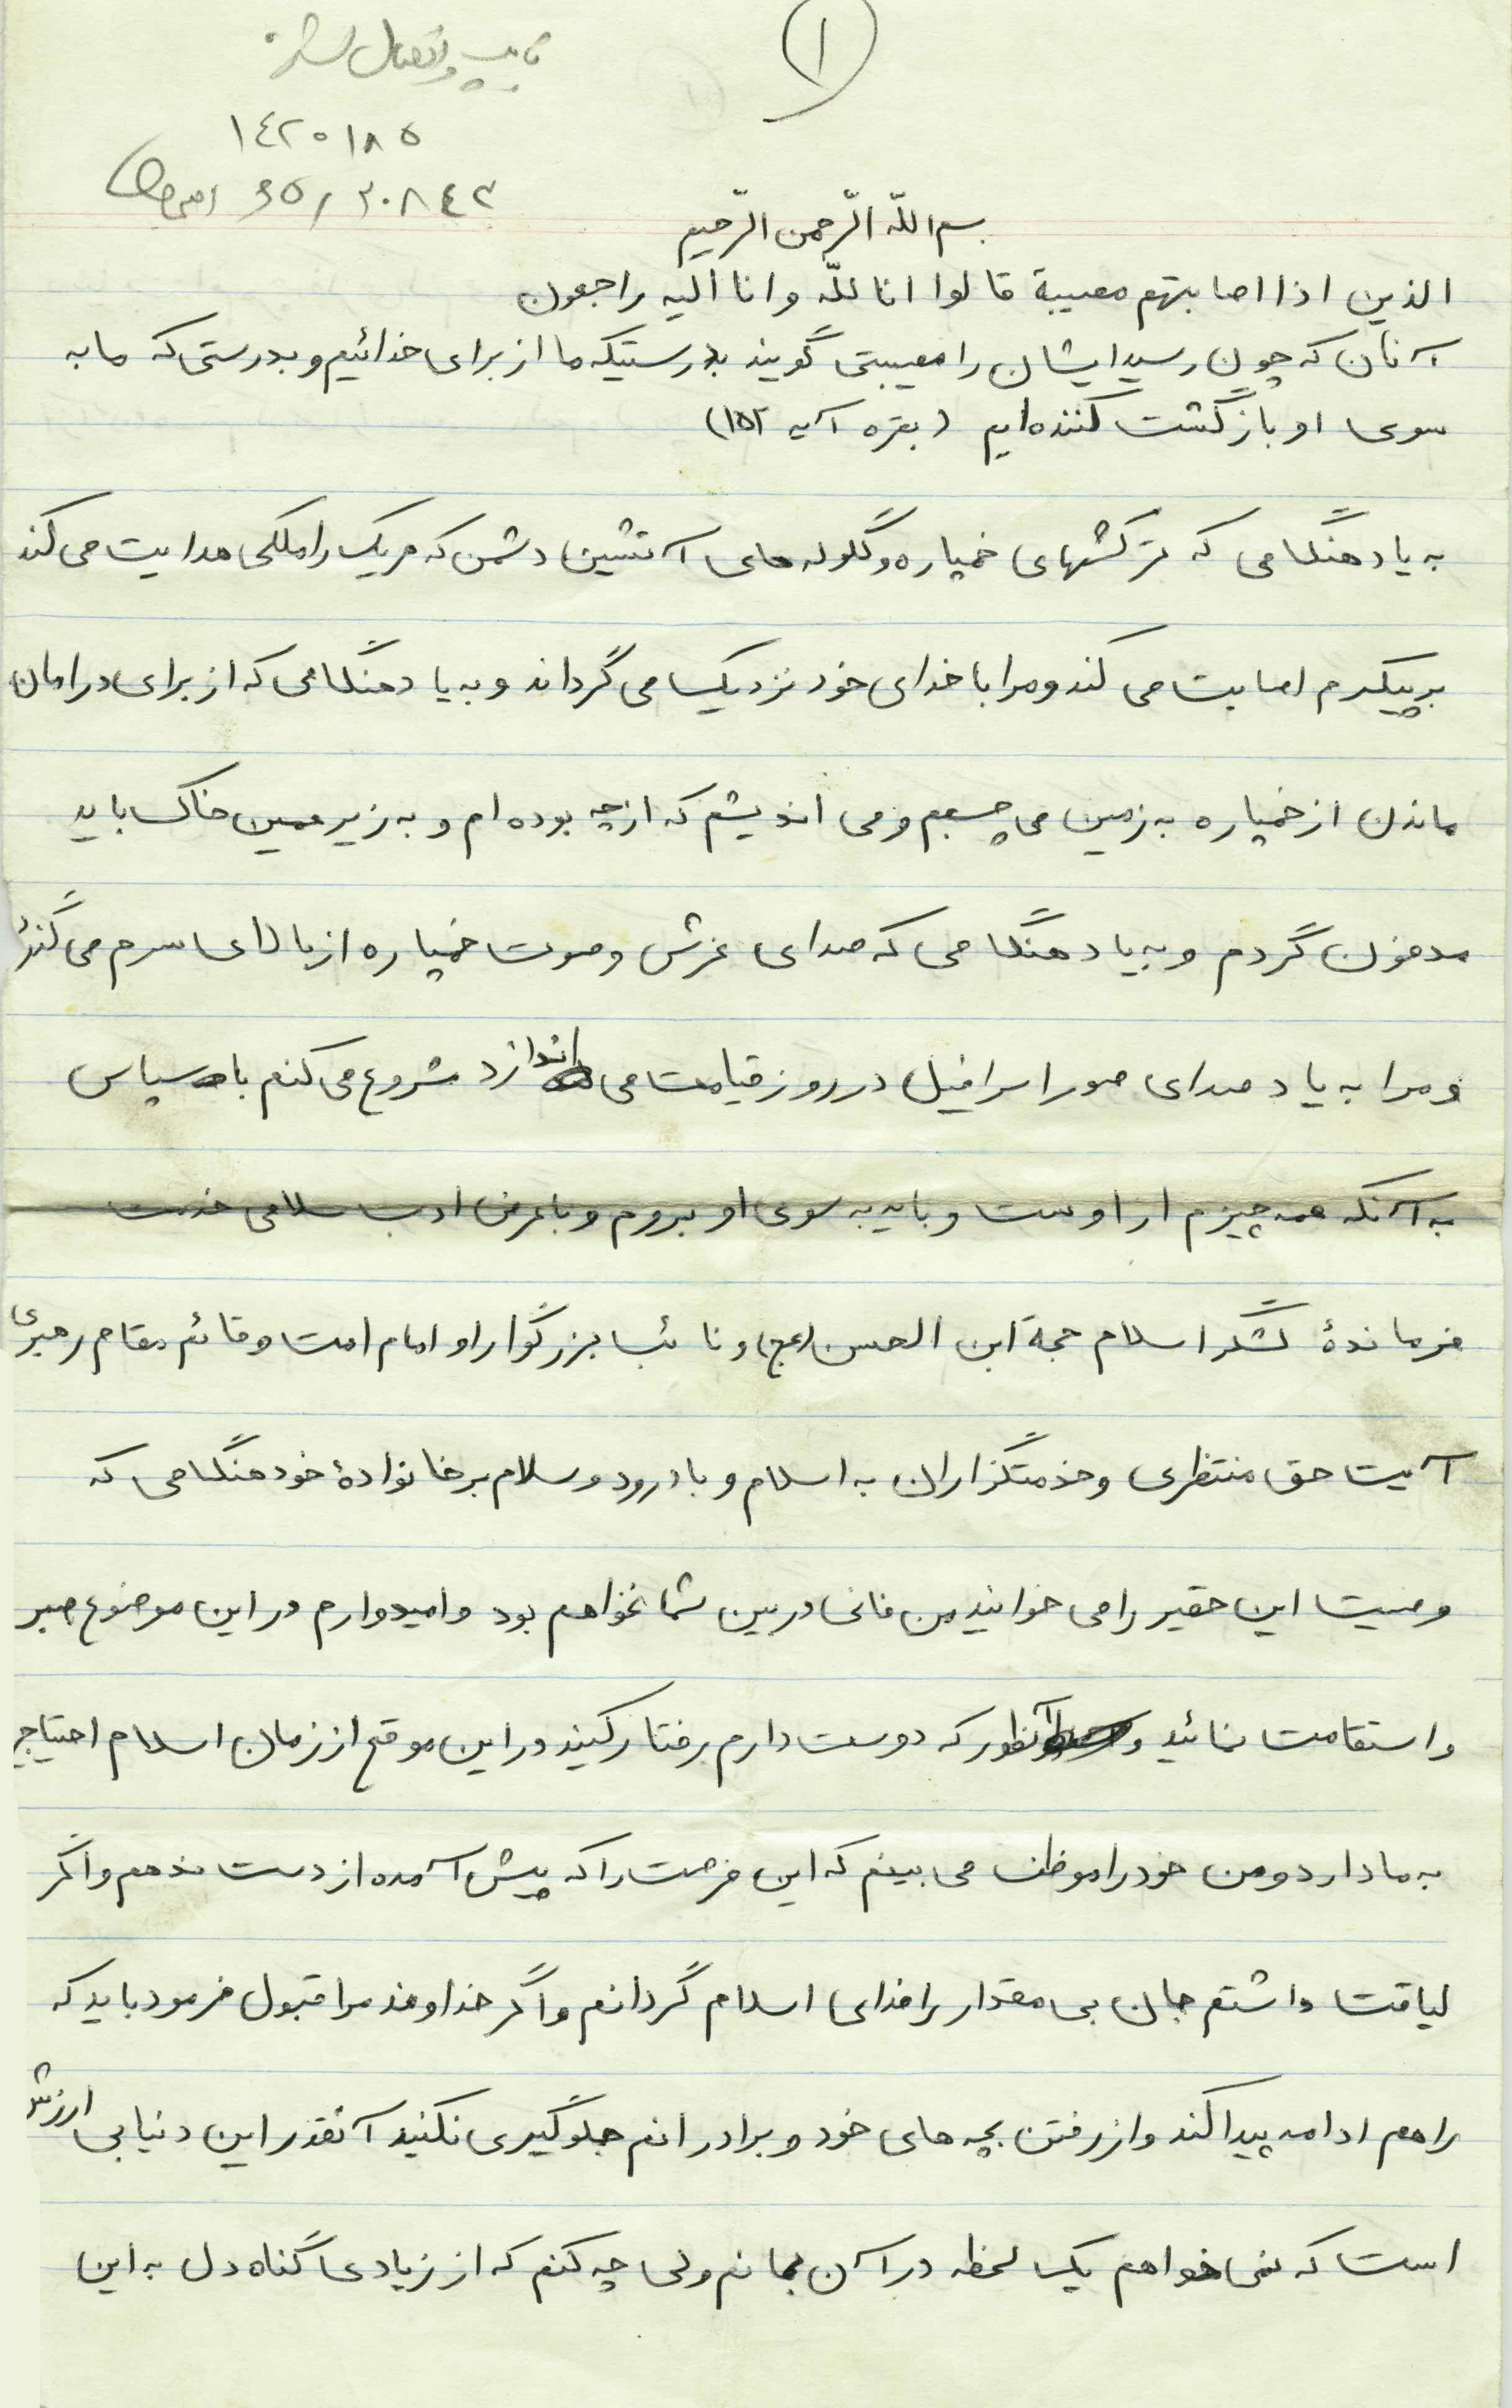 ۱
تایپ و اتصال شد
۱۴۲۰۱۸۵
بسم اللّه الرّحمن الرّحیم
الذین اذا اصابتهم مصیبة قالوا انا للّه و انا الیه راجعون
آنان که چون رسید ایشان را مصیبتی گویند بدرستیکه ما از برای خدائیم و بدرستی که ما به
سوی او بازگشت کننده‌ایم (بقره آیه ۱۵۲)
به یاد هنگامی که ترکشهای خمپاره و گلوله های آتشین دشمن که هریک را ملکی هدایت می کند
بر پیکرم اصابت می کند و مرا با خدای خود نزدیک می گرداند و به یاد هنگامی که از برای در امان
ماندن از خمپاره به زمین می چسبم و می اندیشم که از چه بوده ام و به زیر همین خاک باید
مدفون گردم و به یاد هنگامی که صدای غرش و صوت خمپاره از بالای سرم می گذرد
و مرا به یاد صدای صور اسرافیل در روز قیامت می اندازد شروع می کنم با سپاس
به آنکه همه چیزم از اوست و باید به سوی او بروم و با عرض ادب سلامی خدمت
فرماندهٔ لشگر اسلام حجة ابن الحسن (عج) و نائب بزرگوار او امام امت و قائم مقام رهبری
آیت حق منتظری و خدمتگزاران به اسلام و با درود و سلام بر خانوادهٔ خود هنگامی که
وصیت این حقیر را می خوانید من فانی در بین شما نخواهم بود و امیدوارم در این موضوع صبر
و استقامت نمائید و آنطور که دوست دارم رفتار کنید در این موقع از زمان اسلام احتیاج
به ما دارد و من خود را موظف می بینم که این فرصت را که پیش آمده از دست ندهم و اگر
لیاقت داشتم جان بی مقدار را فدای اسلام گردانم و اگر خداوند مرا قبول فرمود باید که
راهم ادامه پیدا کند و از رفتن بچه های خود و برادرانم جلوگیری نکنید آنقدر این دنیا بی ارزش
است که نمی خواهم یک لحظه در آن بمانم ولی چه کنم که از زیادی گناه دل به این